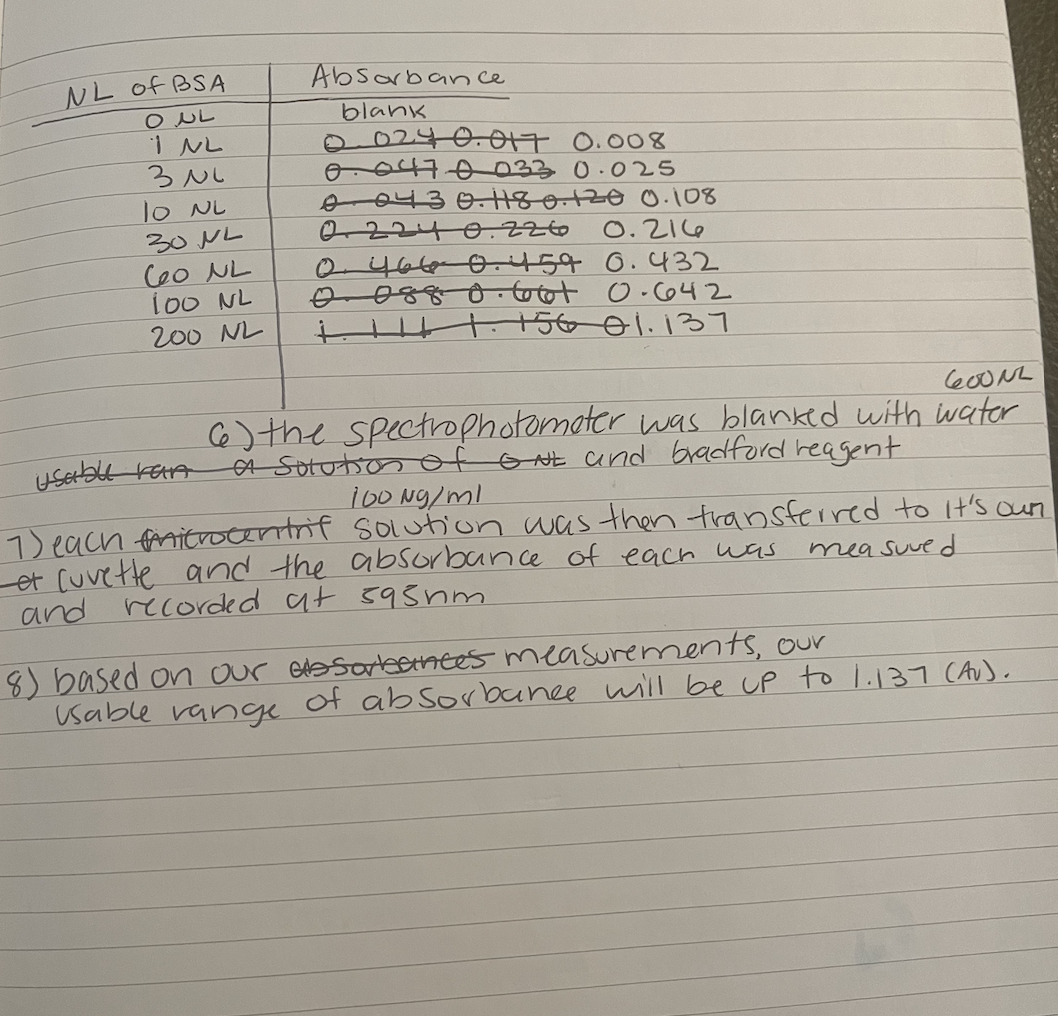 NL of BSA Absorbance
0 NL blank
1 NL 0.024 0.017 0.008
3 NL 0.047 0.033 0.025
10 NL 0.043 0.118 0.120 0.108
30 NL 0.224 0.226 0.216
60 NL 0.466 0.459 0.432
100 NL 0.088 0.661 0.642
200 NL 1.111 1.156 0 1.137
600 NL
6) the spectrophotometer was blanked with water
usable ran a solution of 0 NL and bradford reagent
100 Ng/ml
7) each microcentrif solution was then transferred to it's own
cuvette and the absorbance of each was measured
and recorded at 595nm
8) based on our absorbances measurements, our
usable range of absorbance will be up to 1.137 (Au).